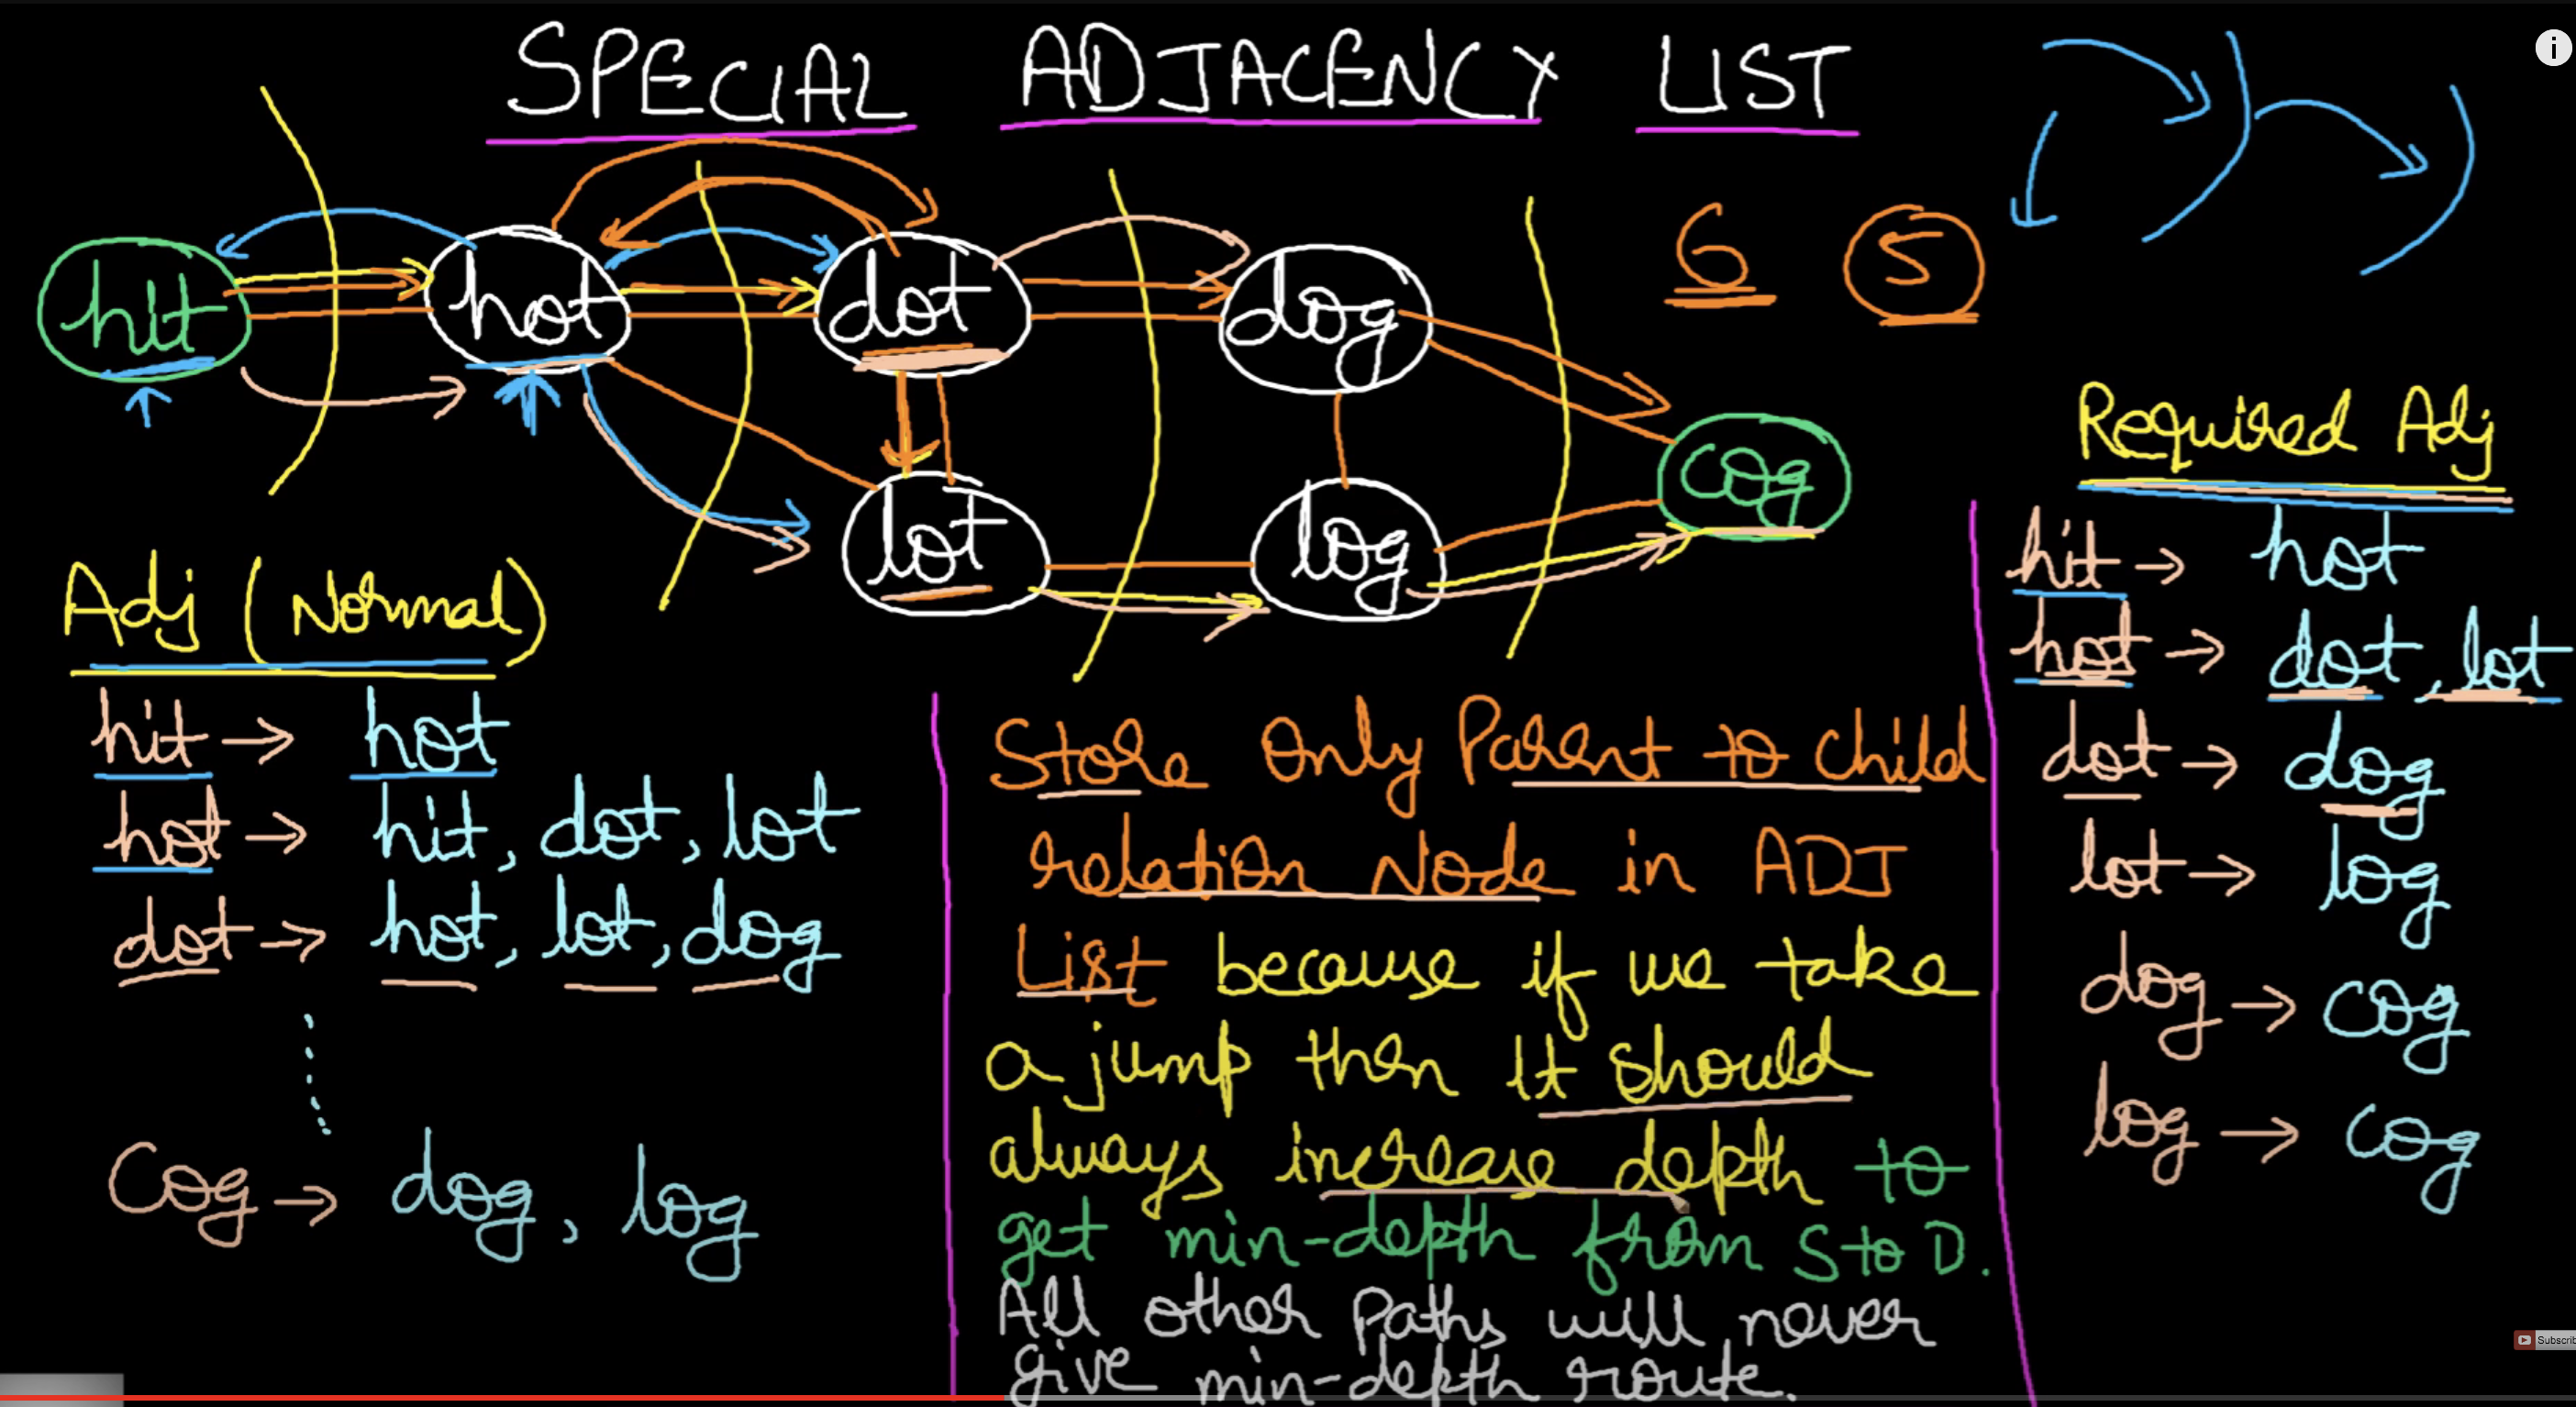 SPECIAL ADJACENCY LIST
hit
hot
dot
dog
6
5
lot
log
cog
Adj (Normal)
hit → hot
hot → hit, dot, lot
dot → hot, lot, dog
Cog → dog, log
Store Only Parent to Child
relation Node in ADJ
List because if we take
a jump then it should
always increase depth to
get min-depth from S to D.
All other Paths will never
give min-depth route.
Required Adj
hit → hot
hot → dot, lot
dot → dog
lot → log
dog → cog
log → cog
Subscrib